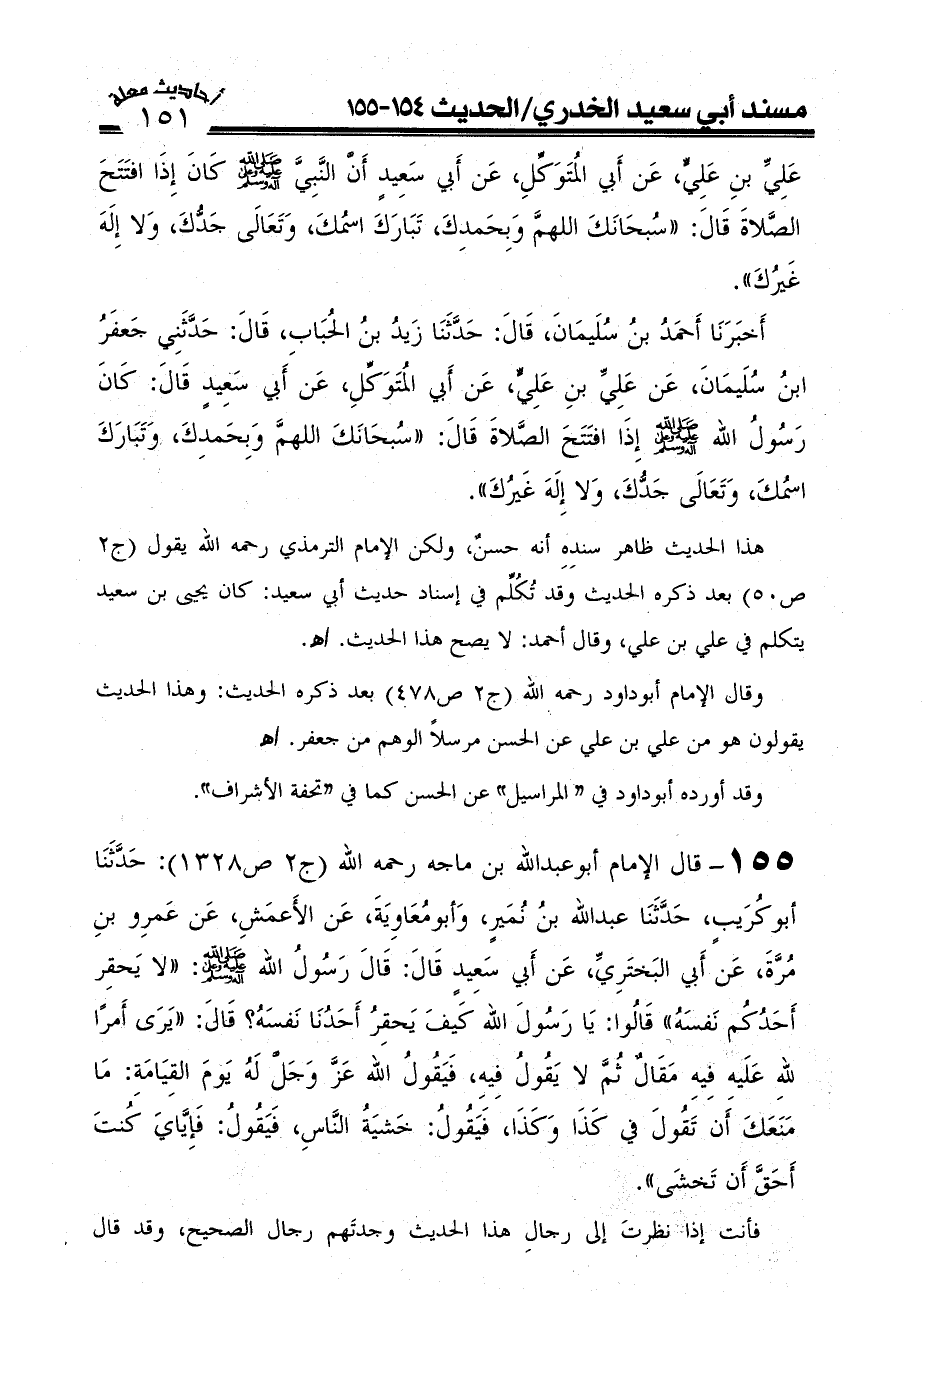 مسند أبي سعيد الخدري/الحديث ١٥٤-١٥٥
أحاديث معلة
١٥١
عَلِيِّ بنِ عَلِيٍّ، عَن أَبي المُتَوَكِّلِ، عَن أَبي سَعِيدٍ أَنَّ النَّبِيَّ ﷺ كَانَ إِذَا افتَتَحَ
الصَّلاةَ قَالَ: «سُبحَانَكَ اللهمَّ وَبِحَمدِكَ، تَبَارَكَ اسمُكَ، وَتَعَالَى جَدُّكَ، وَلا إِلَهَ
غَيرُكَ».
أَخبَرَنَا أَحمَدُ بنُ سُلَيمَانَ، قَالَ: حَدَّثَنَا زَيدُ بنُ الحُبَابِ، قَالَ: حَدَّثَنِي جَعفَرُ
ابنُ سُلَيمَانَ، عَن عَلِيِّ بنِ عَلِيٍّ، عَن أَبي المُتَوَكِّلِ، عَن أَبي سَعِيدٍ قَالَ: كَانَ
رَسُولُ الله ﷺ إِذَا افتَتَحَ الصَّلاةَ قَالَ: «سُبحَانَكَ اللهمَّ وَبِحَمدِكَ، وَتَبَارَكَ
اسمُكَ، وَتَعَالَى جَدُّكَ، وَلا إِلَهَ غَيرُكَ».
هذا الحديث ظاهر سندِهِ أنه حسنٌ، ولكن الإمام الترمذي رحمه الله يقول (ج٢
ص٥٠) بعد ذكره الحديث وقد تُكُلِّم في إسناد حديث أبي سعيد: كان يحيى بن سعيد
يتكلم في علي بن علي، وقال أحمد: لا يصح هذا الحديث. اﻫ.
وقال الإمام أبوداود رحمه الله (ج٢ ص٤٧٨) بعد ذكره الحديث: وهذا الحديث
يقولون هو من علي بن علي عن الحسن مرسلاً الوهم من جعفر. اﻫ
وقد أورده أبوداود في «المراسيل» عن الحسن كما في «تحفة الأشراف».
١٥٥- قال الإمام أبوعبدالله بن ماجه رحمه الله (ج٢ ص١٣٢٨): حَدَّثَنَا
أبوكُرَيبٍ، حَدَّثَنَا عبدالله بنُ نُمَيرٍ، وَأبومُعَاوِيَةَ، عَن الأَعمَشِ، عَن عَمرِو بنِ
مُرَّةَ، عَن أَبي البَختَرِيِّ، عَن أَبي سَعِيدٍ قَالَ: قَالَ رَسُولُ الله ﷺ: «لا يَحقِر
أَحَدُكُم نَفسَهُ» قَالُوا: يَا رَسُولَ الله كَيفَ يَحقِرُ أَحَدُنَا نَفسَهُ؟ قَالَ: «يَرَى أَمرًا
لله عَلَيهِ فِيهِ مَقَالٌ ثُمَّ لا يَقُولُ فِيهِ، فَيَقُولُ الله عَزَّ وَجَلَّ لَهُ يَومَ القِيَامَةِ: مَا
مَنَعَكَ أَن تَقُولَ في كَذَا وَكَذَا، فَيَقُولُ: خَشيَةُ النَّاسِ، فَيَقُولُ: فَإِيَّايَ كُنتَ
أَحَقَّ أَن تَخشَى».
فأنت إذا نظرتَ إلى رجالِ هذا الحديث وجدتَهم رجال الصحيح، وقد قال